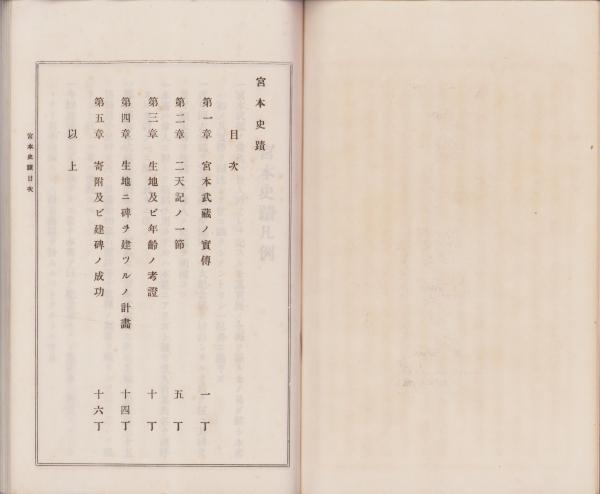 宮本史蹟
目次
第一章 宮本武蔵ノ實傳 一丁
第二章 二天記ノ一節 五丁
第三章 生地及ビ年齡ノ考證 十丁
第四章 生地ニ碑ヲ建ツルノ計畫 十四丁
第五章 寄附及ビ建碑ノ成功 十六丁
以上
宮本史蹟目次
宮本史蹟凡例